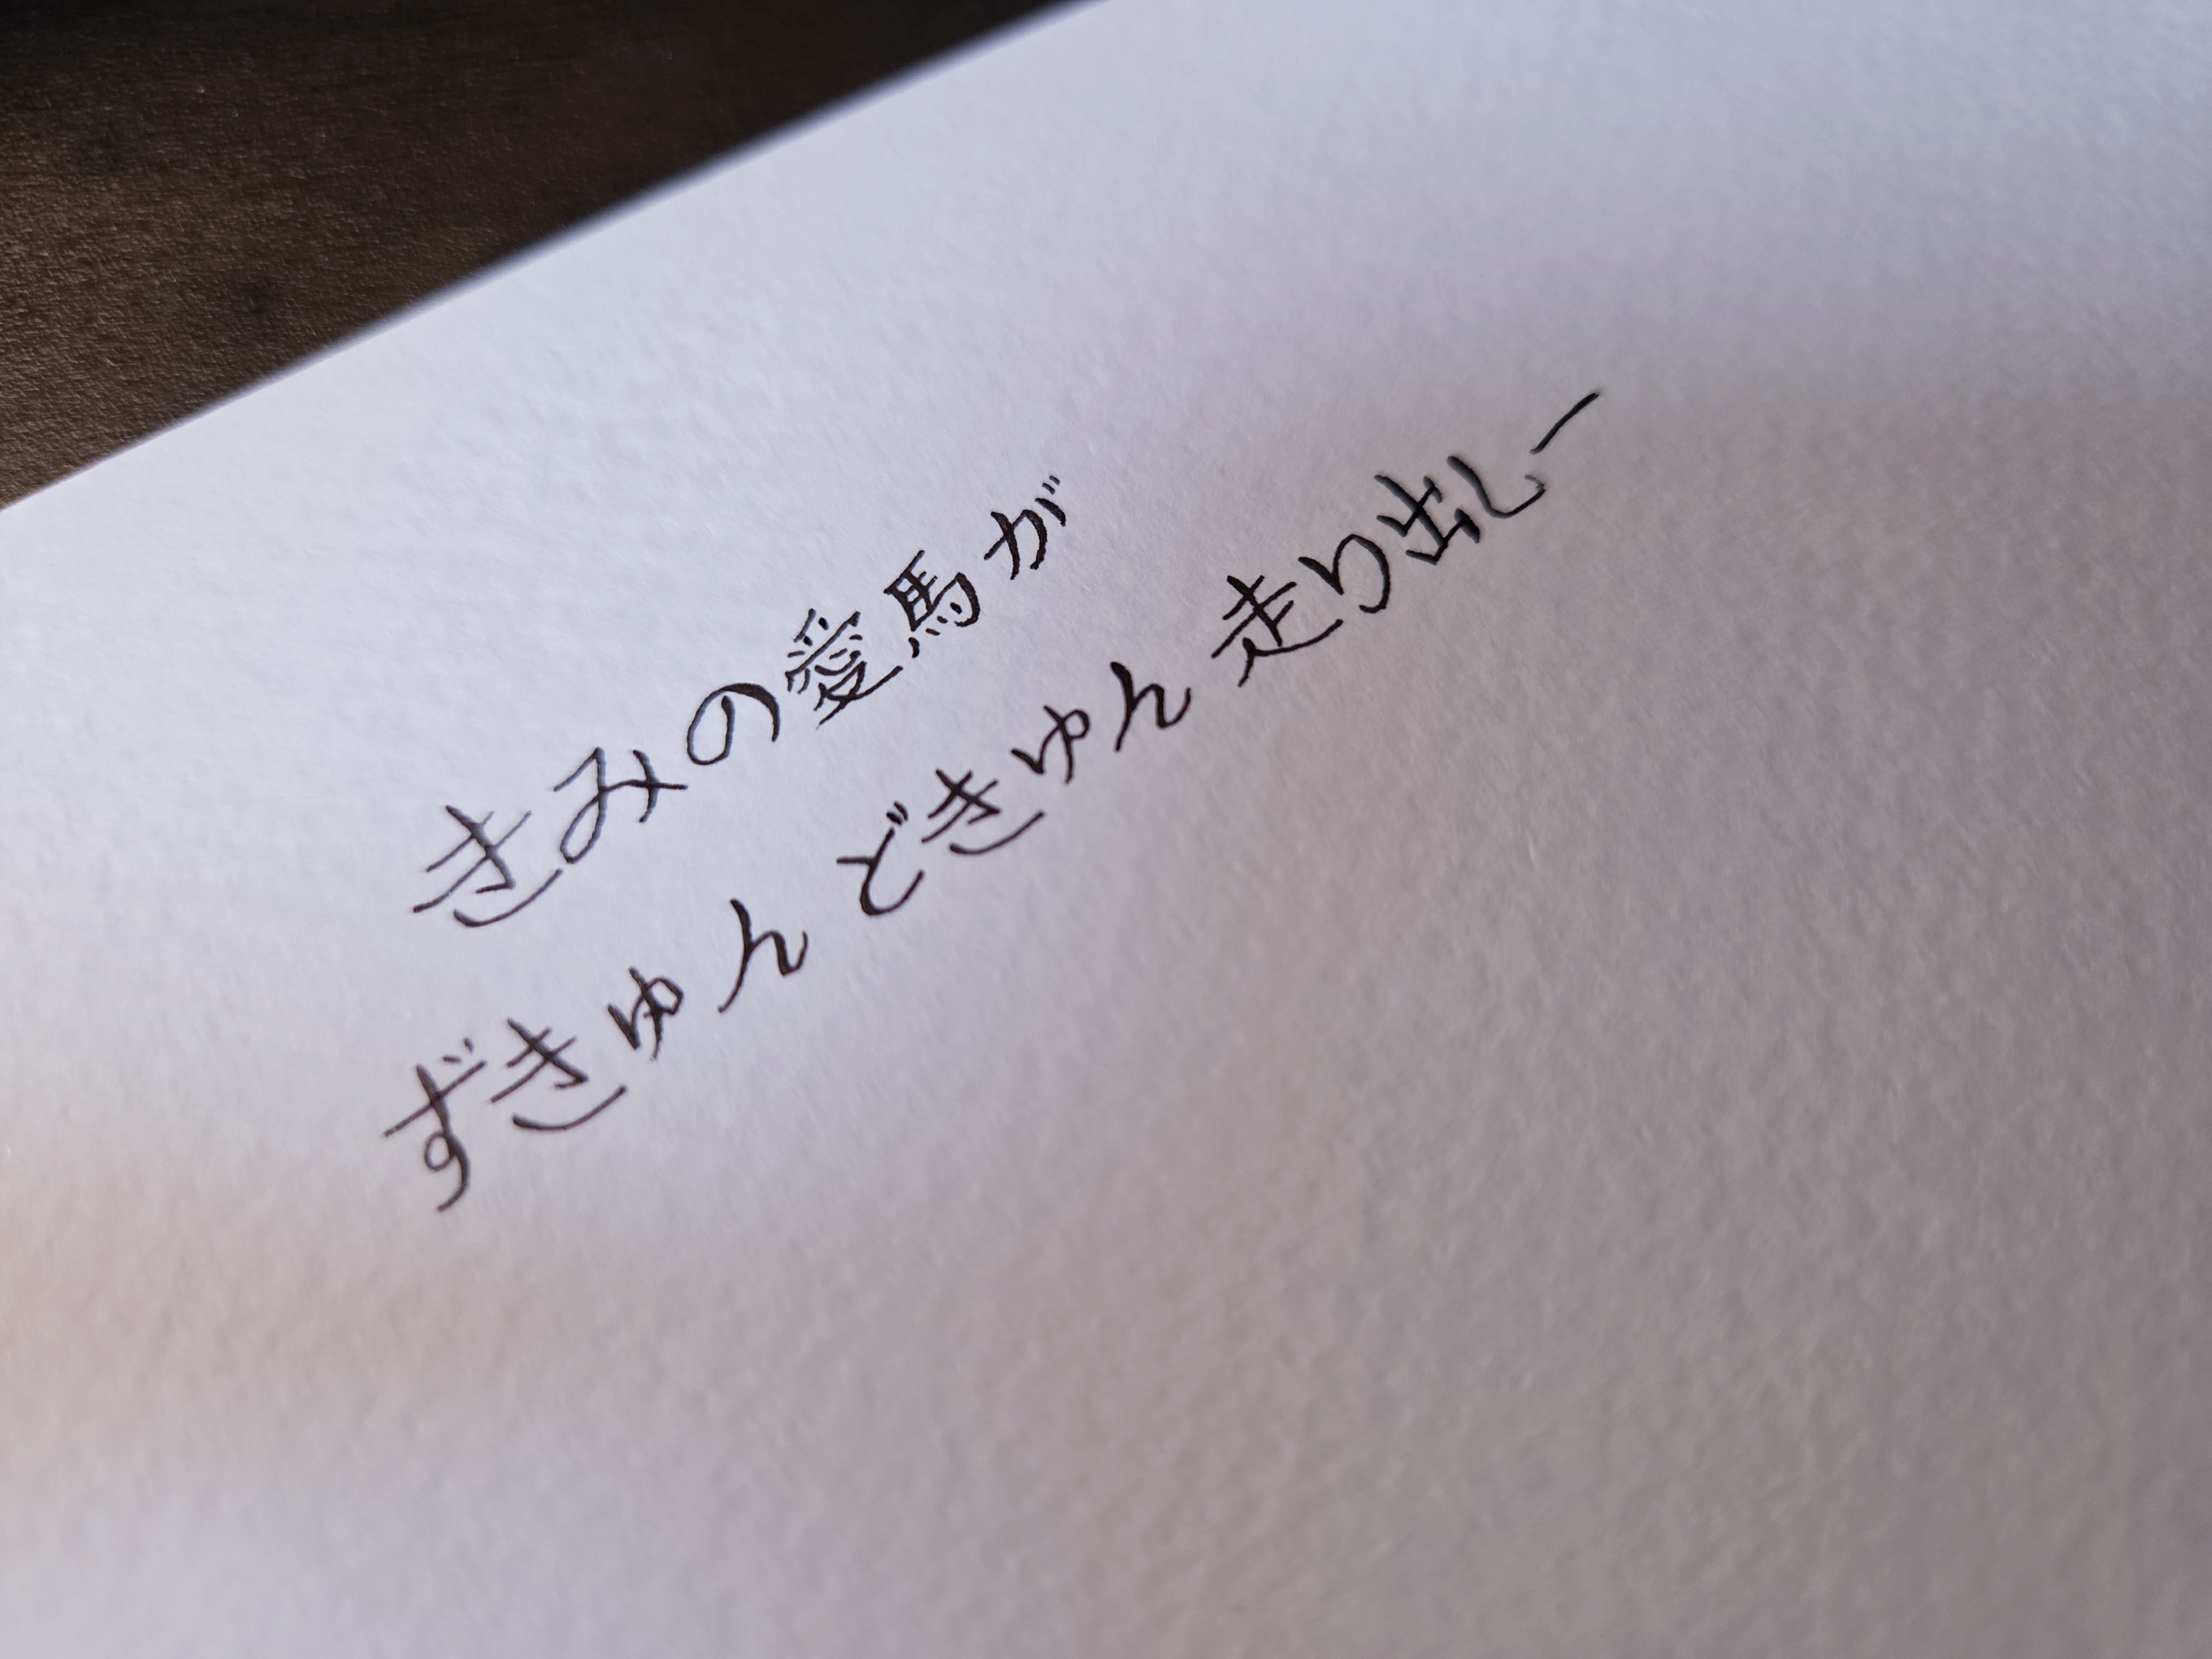 きみの愛馬が
ずきゅん どきゅん 走り出しー